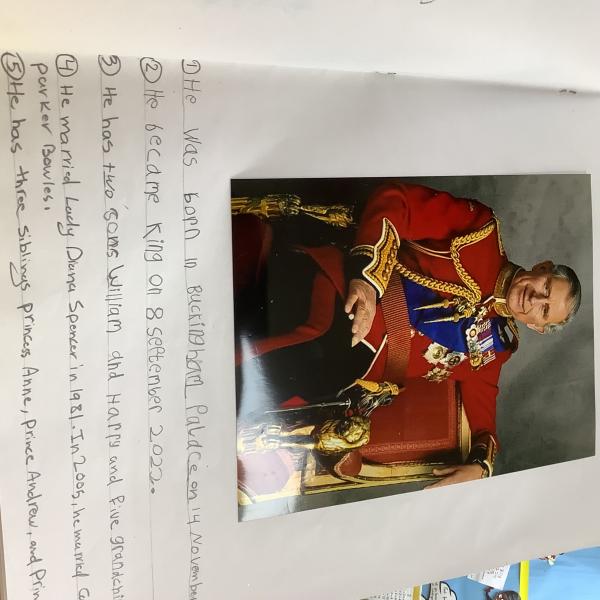 ① He was born in Buckingham Palace on 14 November
② He became King on 8 September 2022.
③ He has two sons William and Harry and five grandchi
④ He married Lady Diana Spencer in 1981. In 2005, he married Ca
parker Bowles.
⑤ He has three siblings princess Anne, prince Andrew, and Prin